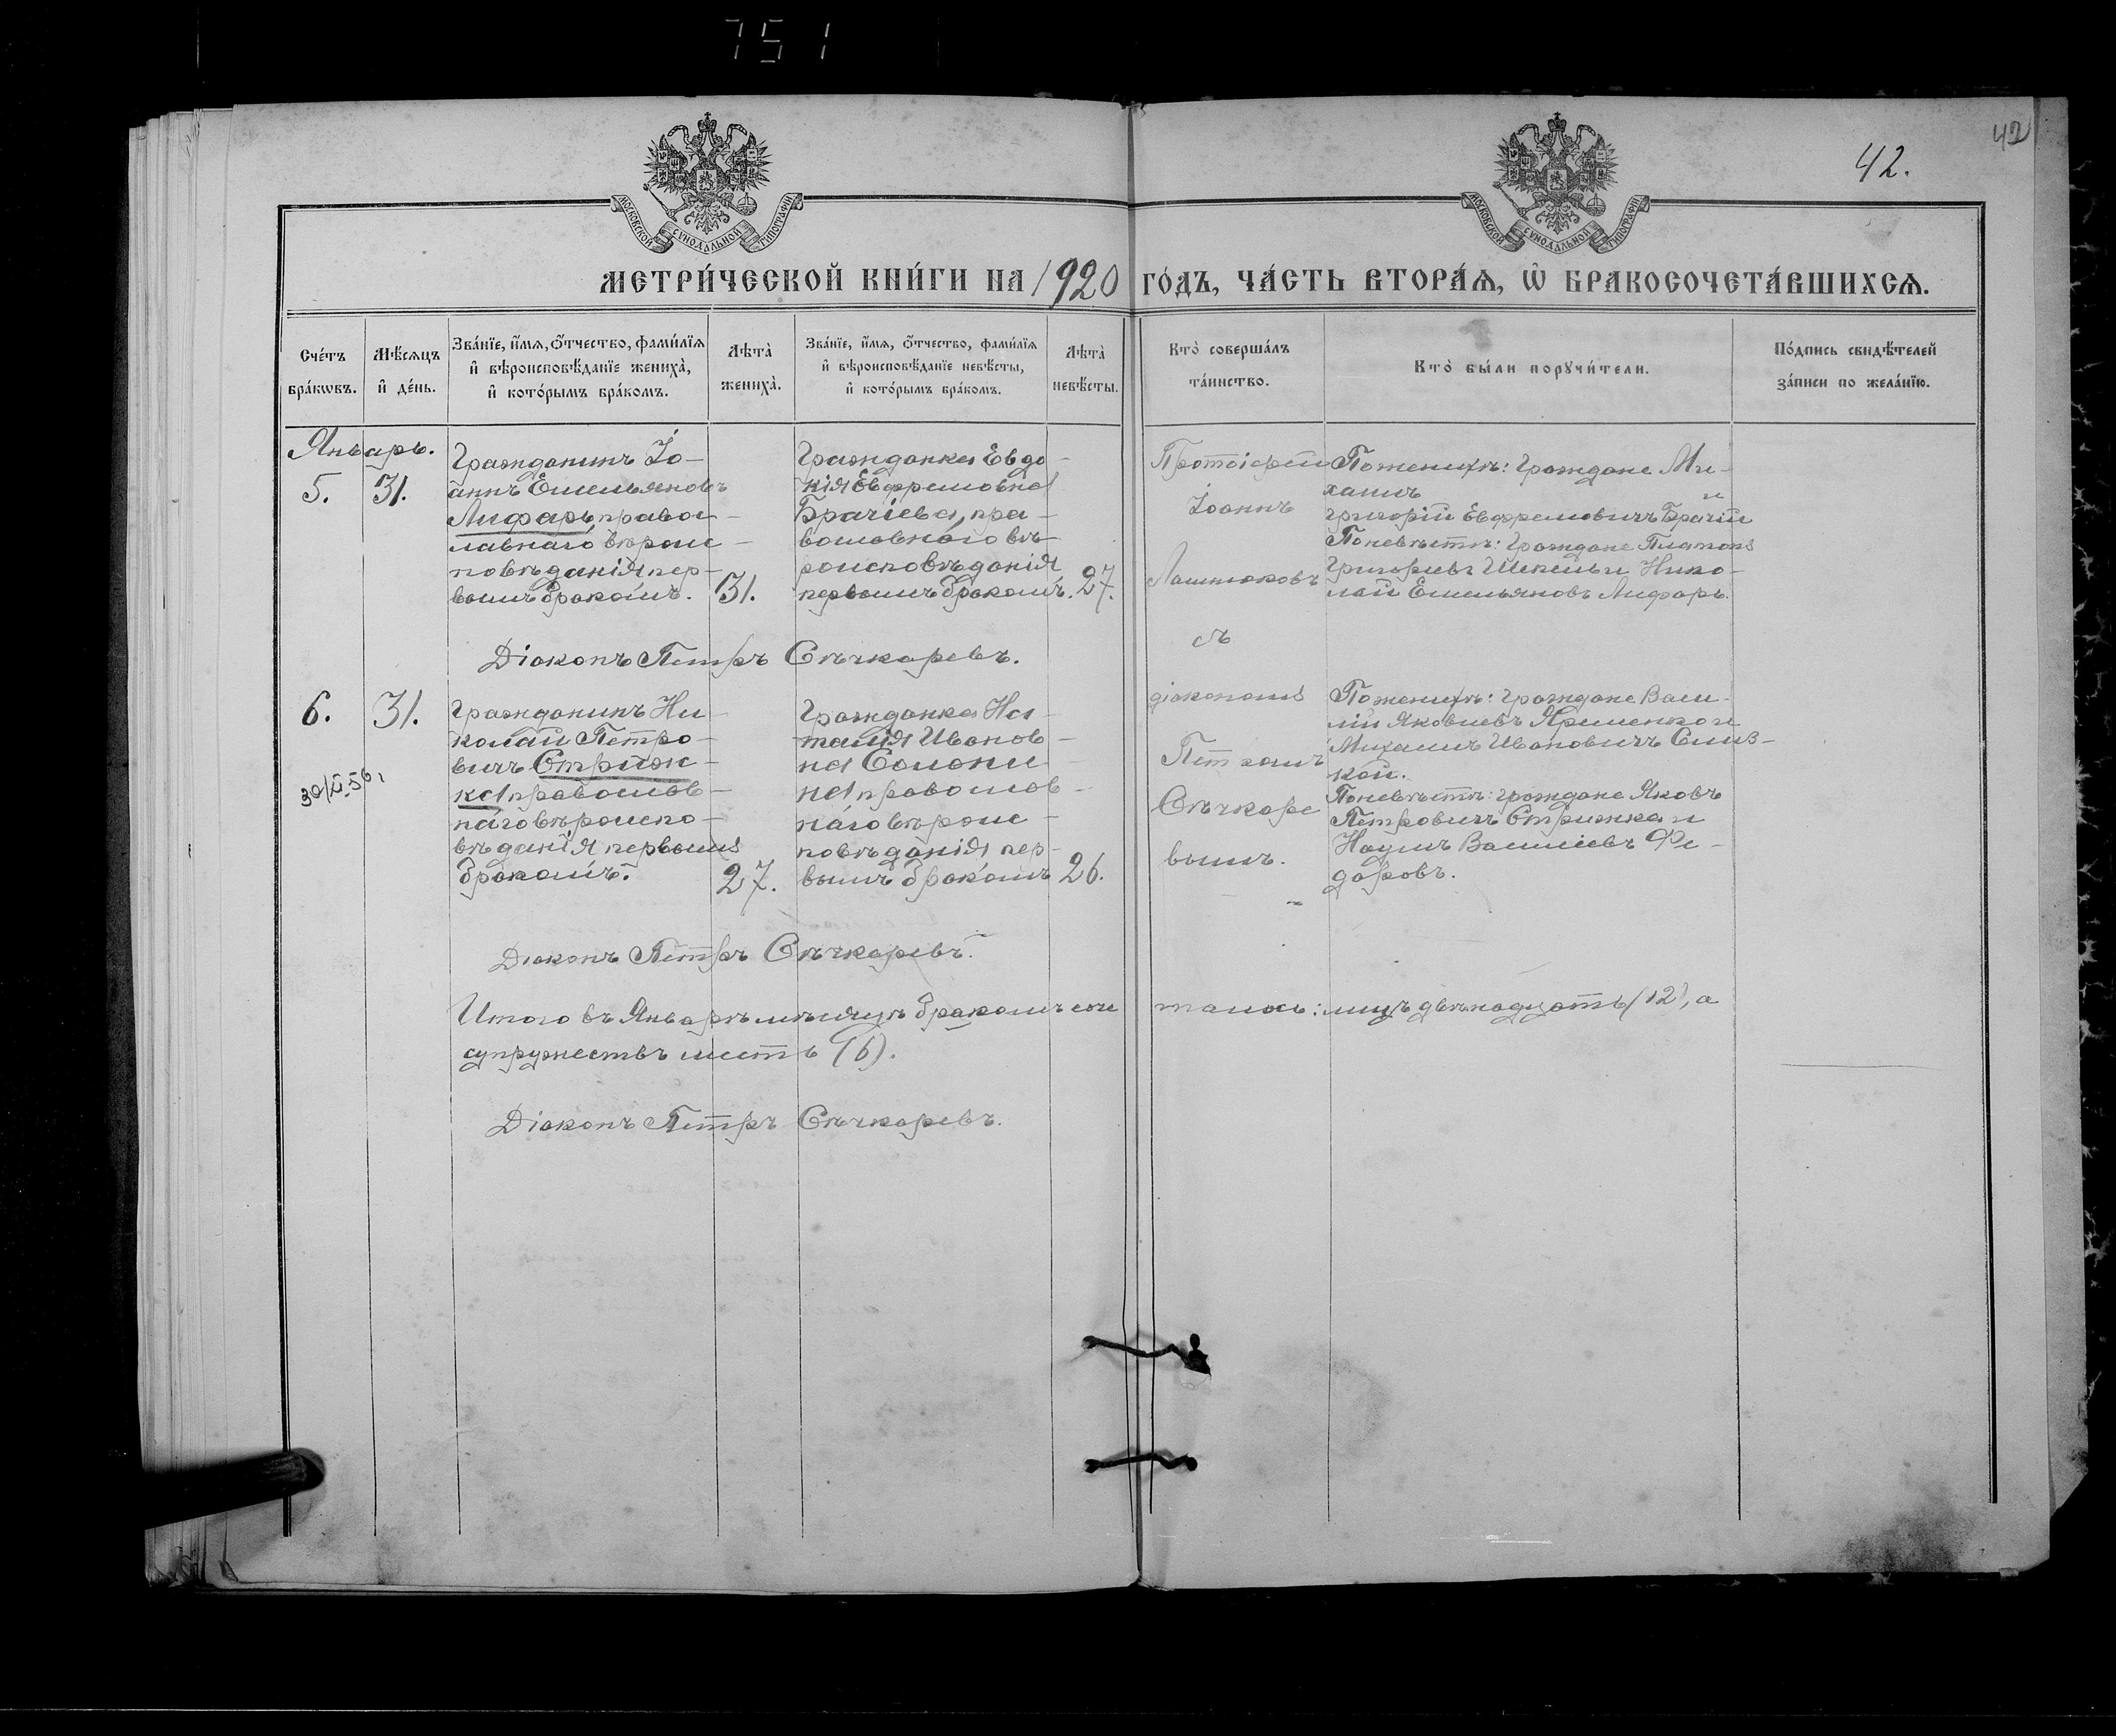 751
42
42.
МОСКОВСКОЙ СѴНОДАЛЬНОЙ ТИПОГРАФІИ
МОСКОВСКОЙ СѴНОДАЛЬНОЙ ТИПОГРАФІИ
МЕТРИ́ЧЕСКОЙ КНИ́ГИ НА 1920 ГО́ДЪ, ЧА́СТЬ ВТОРА́Ѧ, Ѽ БРАКОСОЧЕТА́ВШИХСѦ.
Сче́тъ бра́кѡвъ.
Мѣ́сѧцъ и҆ де́нь.
Зва́нїе, и҆́мѧ, ѻ҆́тчество, фами́лїѧ
и҆ вѣроисповѣ́данїе жениха̀,
и҆ кото́рымъ бра́комъ.
Лѣта̀ жениха̀.
Зва́нїе, и҆́мѧ, ѻ҆́тчество, фами́лїѧ
и҆ вѣроисповѣ́данїе невѣ́сты,
и҆ кото́рымъ бра́комъ.
Лѣта̀ невѣ́сты.
Кто̀ соверша́лъ
та́инство.
Кто̀ бы́ли порꙋчи́тели.
По́дпись свидѣ́телей
за́писи по жела́нїю.
Январь.
5.
31.
Гражданинъ Іо-
аннъ Емельяновъ
Лифарь, правос-
лавнаго вѣроис-
повѣданія пер-
вымъ бракомъ.
31.
Гражданка Евдо-
кія Евфремовна
Брачіева, пра-
вославнаго вѣ-
роисповѣданія
первымъ бракомъ.
27.
Протоіерей
Іоаннъ
Лашнюковъ
съ
діакономъ
Петромъ
Сѣчкаре
вымъ.
По женихѣ: Граждане Ми-
хаилъ и
Григорій Евфремовичъ Брачій
По невѣстѣ: Граждане Платонъ
Григорьевъ Шекель и Нико-
лай Емельяновъ Лифарь.
Діаконъ Петръ Сѣчкаревъ.
6.
31.
30/XI 56,
Гражданинъ Ни-
колай Петро-
вичъ Стриж-
ка, православ-
наго вѣроиспо-
вѣданія первымъ
бракомъ.
27.
Гражданка На-
талія Иванов-
на Солони-
на, православ-
наго вѣроис-
повѣданія пер-
вымъ бракомъ
26.
По женихѣ: Граждане Васи-
лій Яковлевъ Яременко и
Михаилъ Ивановичъ Слив-
кой.
По невѣстѣ: граждане Яковъ
Петровичъ Стрижка и
Наумъ Василіевъ Фе-
доровъ.
Діаконъ Петръ Сѣчкаревъ.
Итого въ Январѣ мѣсяцѣ бракомъ соче талось: лицъ двѣнадцать (12), а
супружествъ шесть (6).
Діаконъ Петръ Сѣчкаревъ.